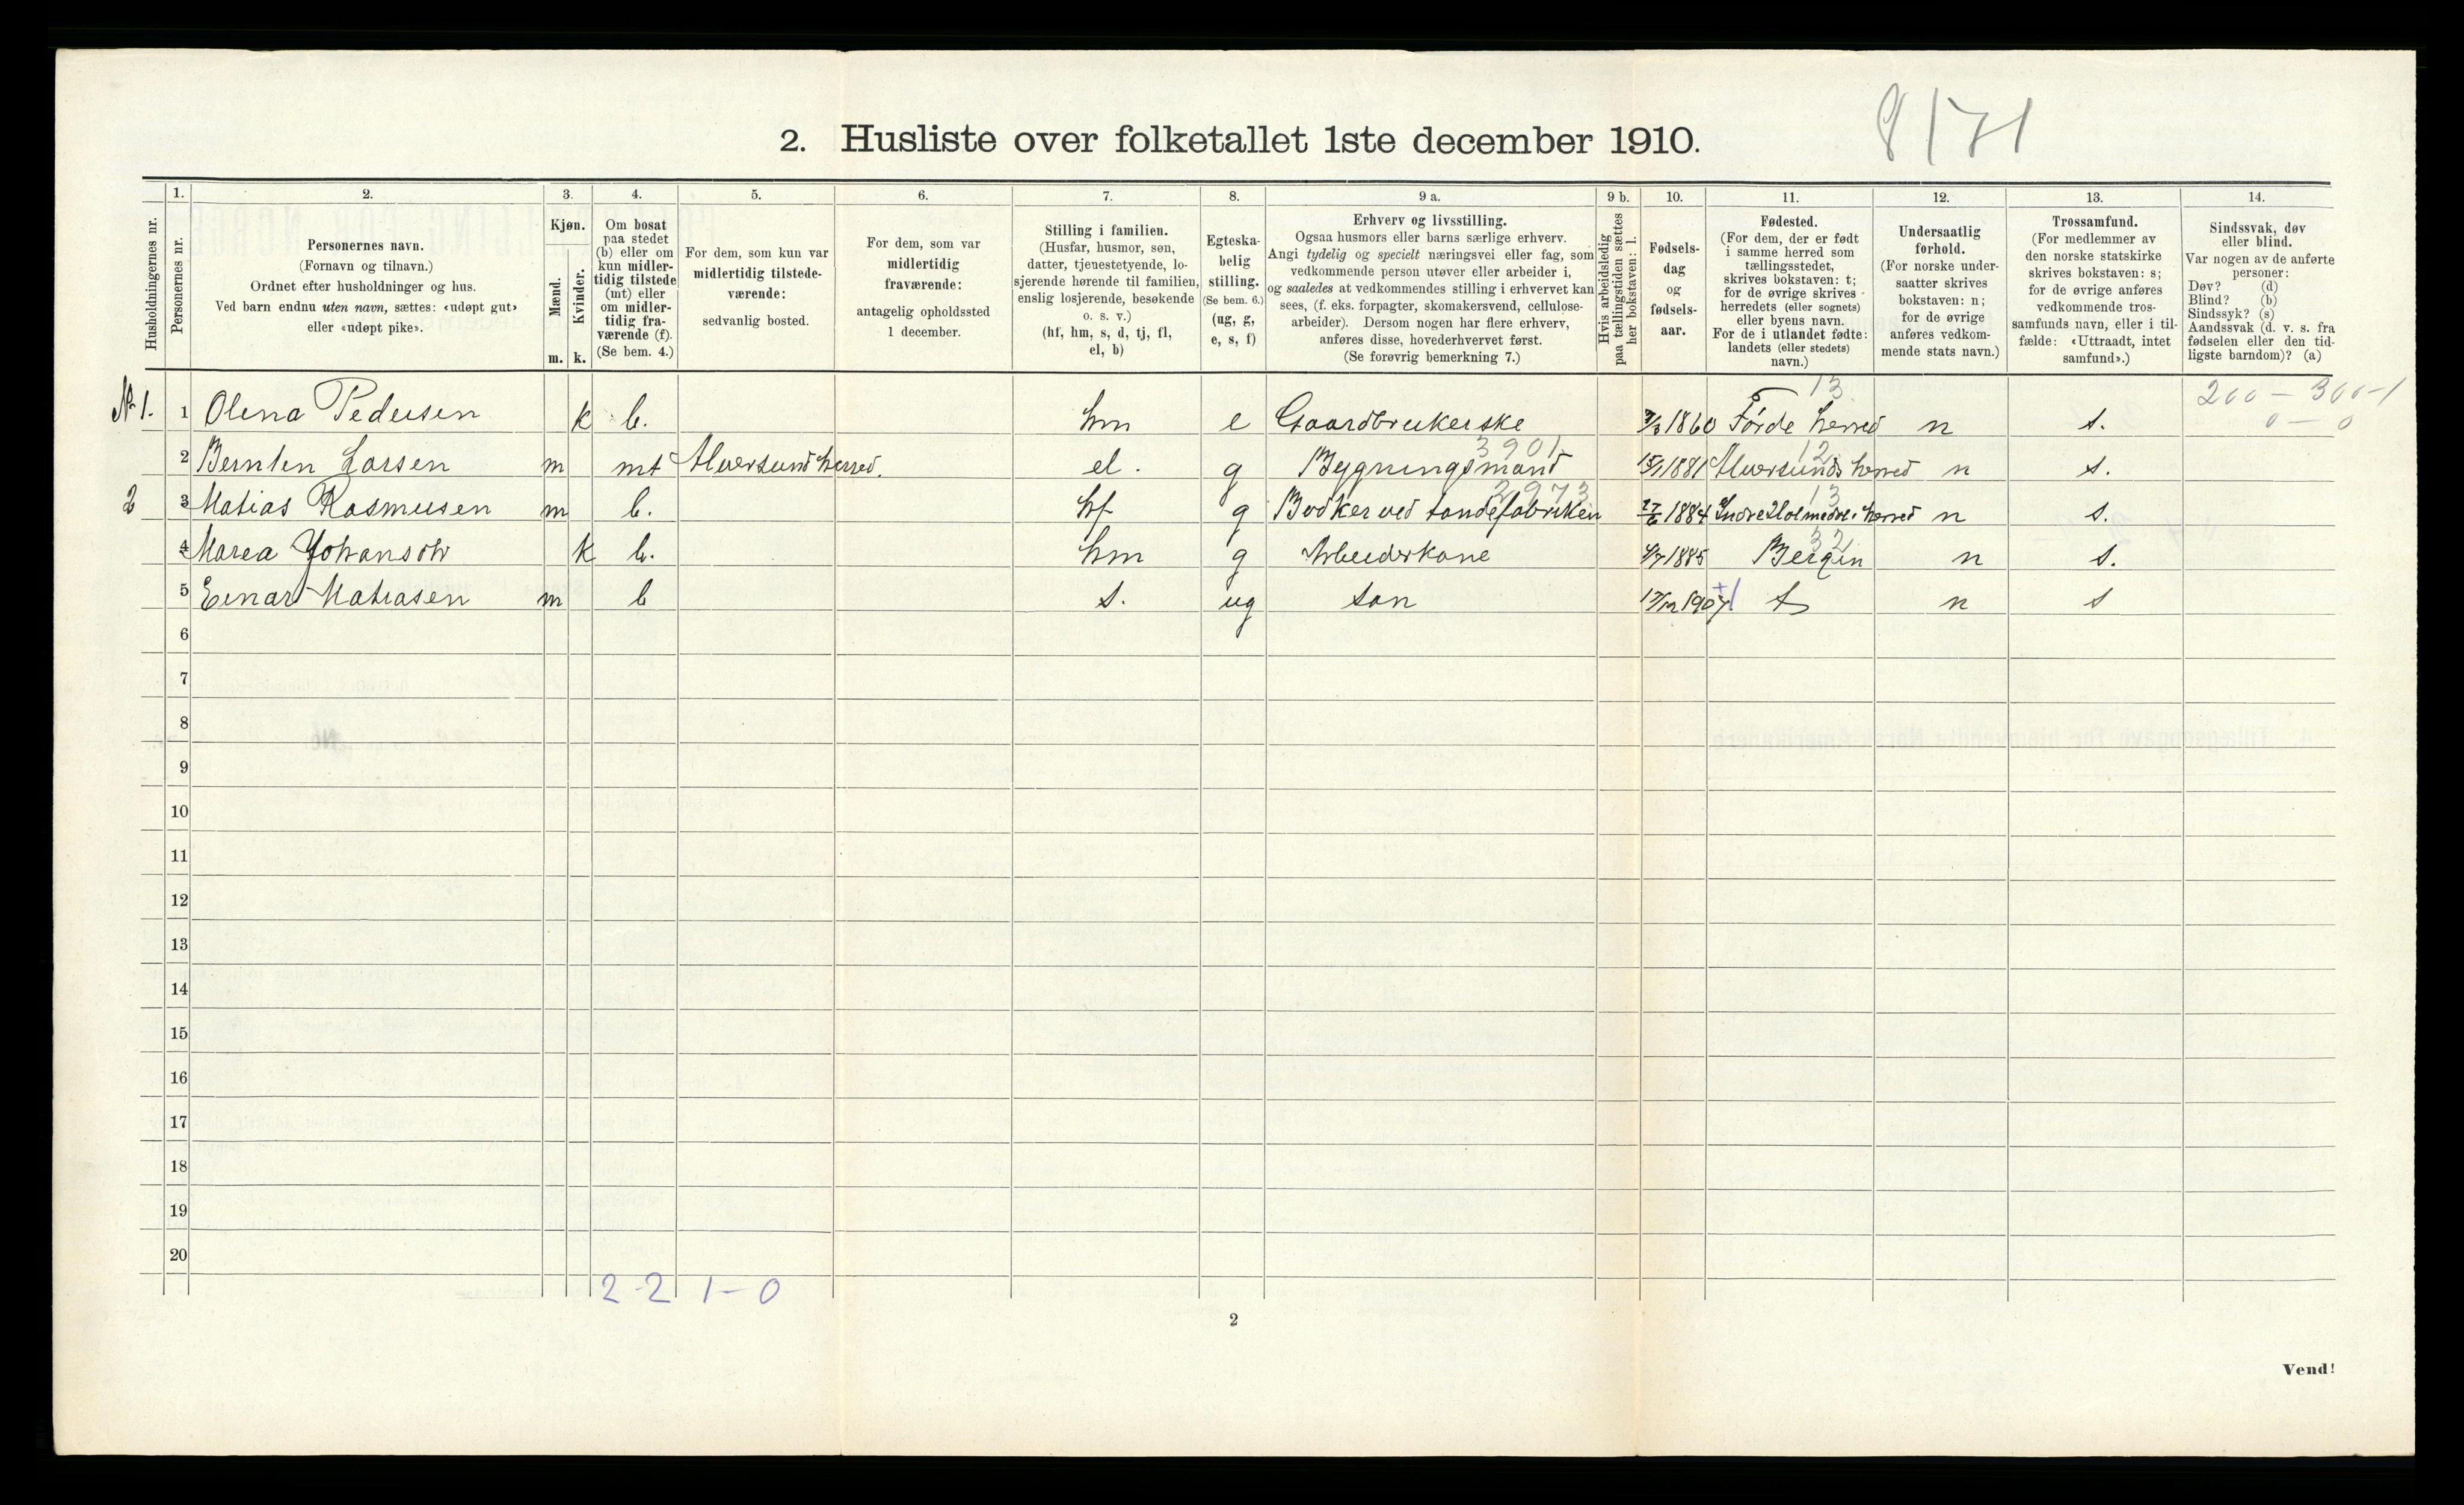 8171
2. Husliste over folketallet 1ste december 1910.
Husholdningernes nr.
1.
Personernes nr.
2.
Personernes navn.
(Fornavn og tilnavn.)
Ordnet efter husholdninger og hus.
Ved barn endnu uten navn, sættes: «udøpt gut»
eller «udøpt pike».
3.
Kjøn.
Mænd.
Kvinder.
m. k.
4.
Om bosat
paa stedet
(b) eller om
kun midler-
tidig tilstede
(mt) eller
om midler-
tidig fra-
værende (f).
(Se bem. 4.)
5.
For dem, som kun var
midlertidig tilstede-
værende:
sedvanlig bosted.
6.
For dem, som var
midlertidig
fraværende:
antagelig opholdssted
1 december.
7.
Stilling i familien.
(Husfar, husmor, søn,
datter, tjenestetyende, lo-
sjerende hørende til familien,
enslig losjerende, besøkende
o. s. v.)
(hf, hm, s, d, tj, fl,
el, b)
8.
Egteska-
belig
stilling.
(Se bem. 6.)
(ug, g,
e, s, f)
9 a.
Erhverv og livsstilling.
Ogsaa husmors eller barns særlige erhverv.
Angi tydelig og specielt næringsvei eller fag, som
vedkommende person utøver eller arbeider i,
og saaledes at vedkommendes stilling i erhvervet kan
sees, (f. eks. forpagter, skomakersvend, cellulose-
arbeider). Dersom nogen har flere erhverv,
anføres disse, hovederhvervet først.
(Se forøvrig bemerkning 7.)
9 b.
Hvis arbeidsledig
paa tællingstiden sættes
her bokstaven: l.
10.
Fødsels-
dag
og
fødsels-
aar.
11.
Fødested.
(For dem, der er født
i samme herred som
tællingsstedet,
skrives bokstaven: t;
for de øvrige skrives
herredets (eller sognets)
eller byens navn.
For de i utlandet fødte:
landets (eller stedets)
navn.)
12.
Undersaatlig
forhold.
(For norske under-
saatter skrives
bokstaven: n;
for de øvrige
anføres vedkom-
mende stats navn.)
13.
Trossamfund.
(For medlemmer av
den norske statskirke
skrives bokstaven: s;
for de øvrige anføres
vedkommende tros-
samfunds navn, eller i til-
fælde: «Uttraadt, intet
samfund».)
14.
Sindssvak, døv
eller blind.
Var nogen av de anførte
personer:
Døv? (d)
Blind? (b)
Sindssyk? (s)
Aandssvak (d. v. s. fra
fødselen eller den tid-
ligste barndom)? (a)
13 200 - 300-1
No 1. 1 Olena Pedersen k b. hm e Gaardbrukerske 1860 Förde herred n s. 0 - 0
3901 12
2 Bernten Larsen m mt Alversund herred. el. g Bygningsmand 15/1 1881 Alversunds herred n s.
2973 13
2 3 Matias Rasmusen m b. hf g Bødker ved tøndefabriken 27/6 1884 Indre Holmedal herred n s.
32
4 Marea Johansen k b. hm g Arbeiderkone 4/7 1885 Bergen n s.
5 Einar Matiasen m b s. ug søn 17/12 1907 t n s
6
7
8
9
10
11
12
13
14
15
16
17
18
19
20
2-2 1-0
2
Vend!